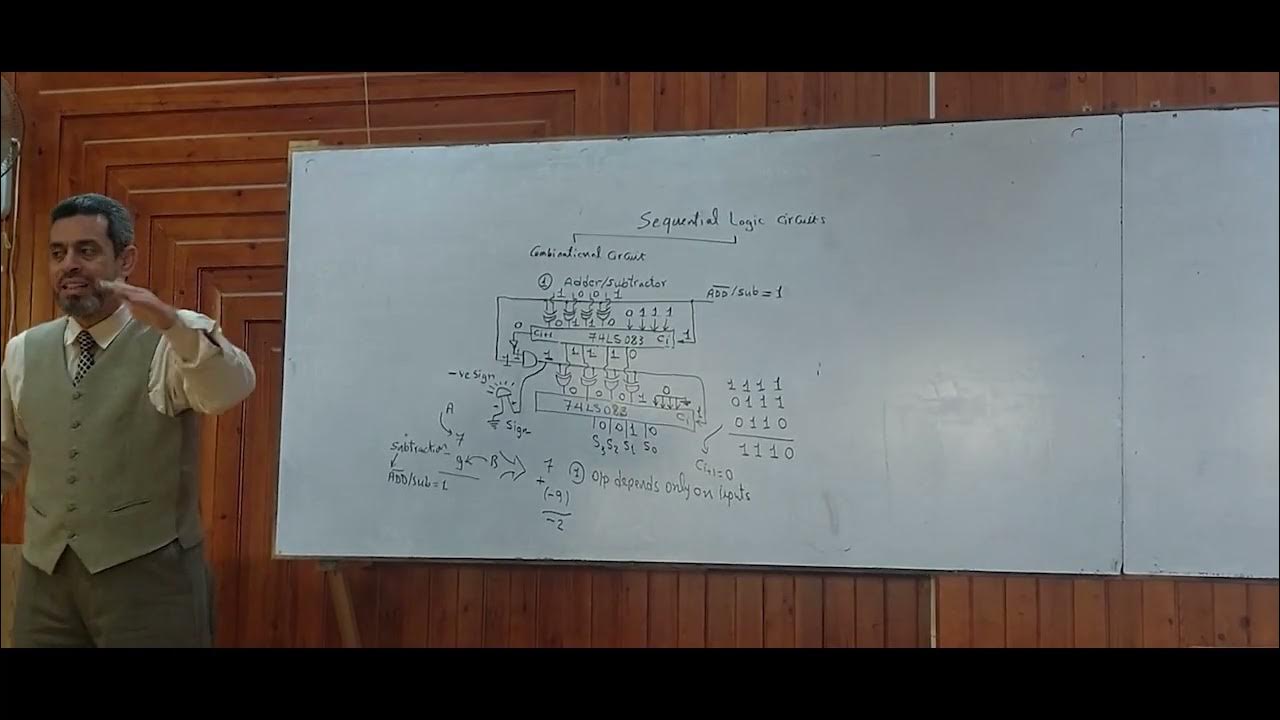 Sequential Logic circuits
Combinational circuit
① Adder/subtractor
1 0 0 1
A̅D̅D̅/sub = 1
0 1 1 0
0 1 1 1
0
Ci+1 74LS083 Ci 1
1 1 1 0
1
1
1
-ve sign
0 0 0 1
0
74LS083 Ci 1
sign
0 0 1 0
S3 S2 S1 S0
1 1 1 1
0 1 1 1
0 1 1 0
1 1 1 0
Ci+1 = 0
A
7
subtraction -
9 B
A̅D̅D̅/sub = 1
7
+
(-9)
-2
① o/p depends only on inputs